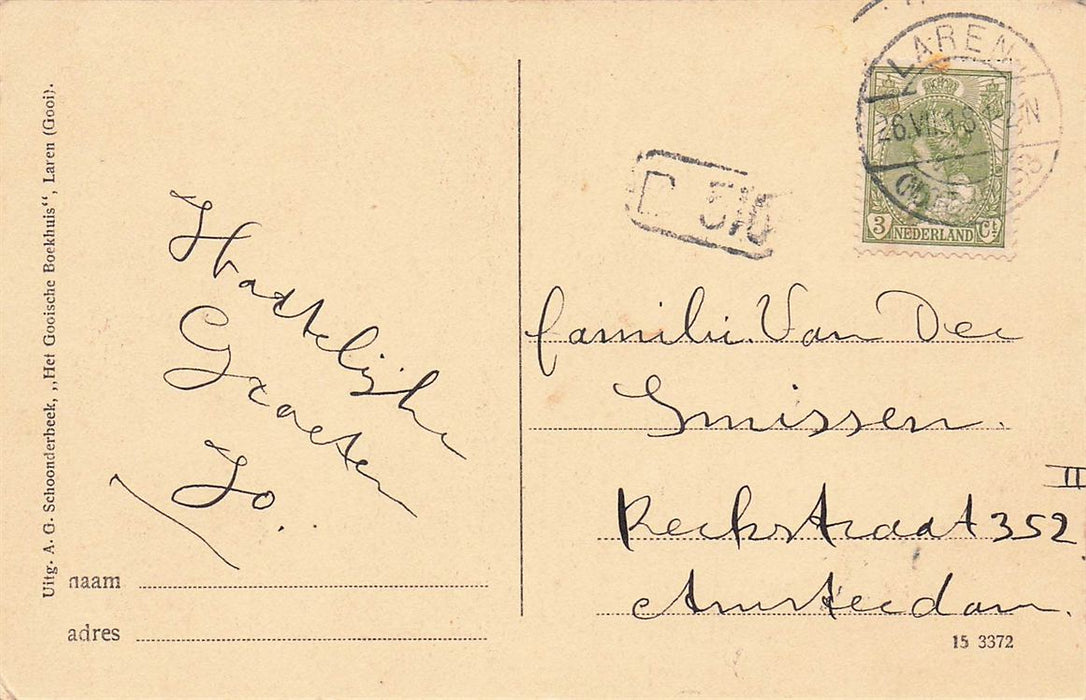 Uitg. A. G. Schoonderbeek, „Het Gooische Boekhuis“, Laren (Gooi).
Hartelijke
Groeten
Jo.
naam
adres
LAREN
3 NEDERLAND Ct
familie Van Der
Smissen.
II
352
Amsterdam.
15 3372